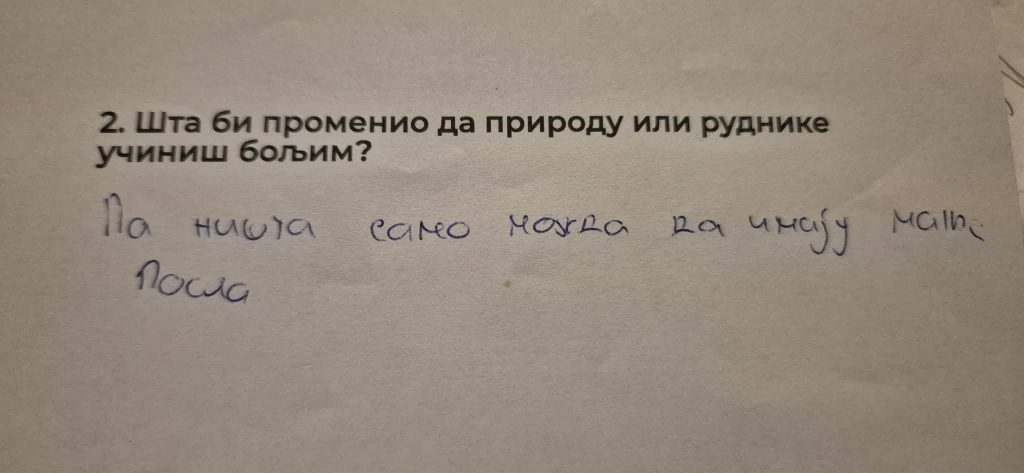 2. Шта би променио да природу или руднике
учиниш бољим?
Па ништа само можда да имају мање
посла